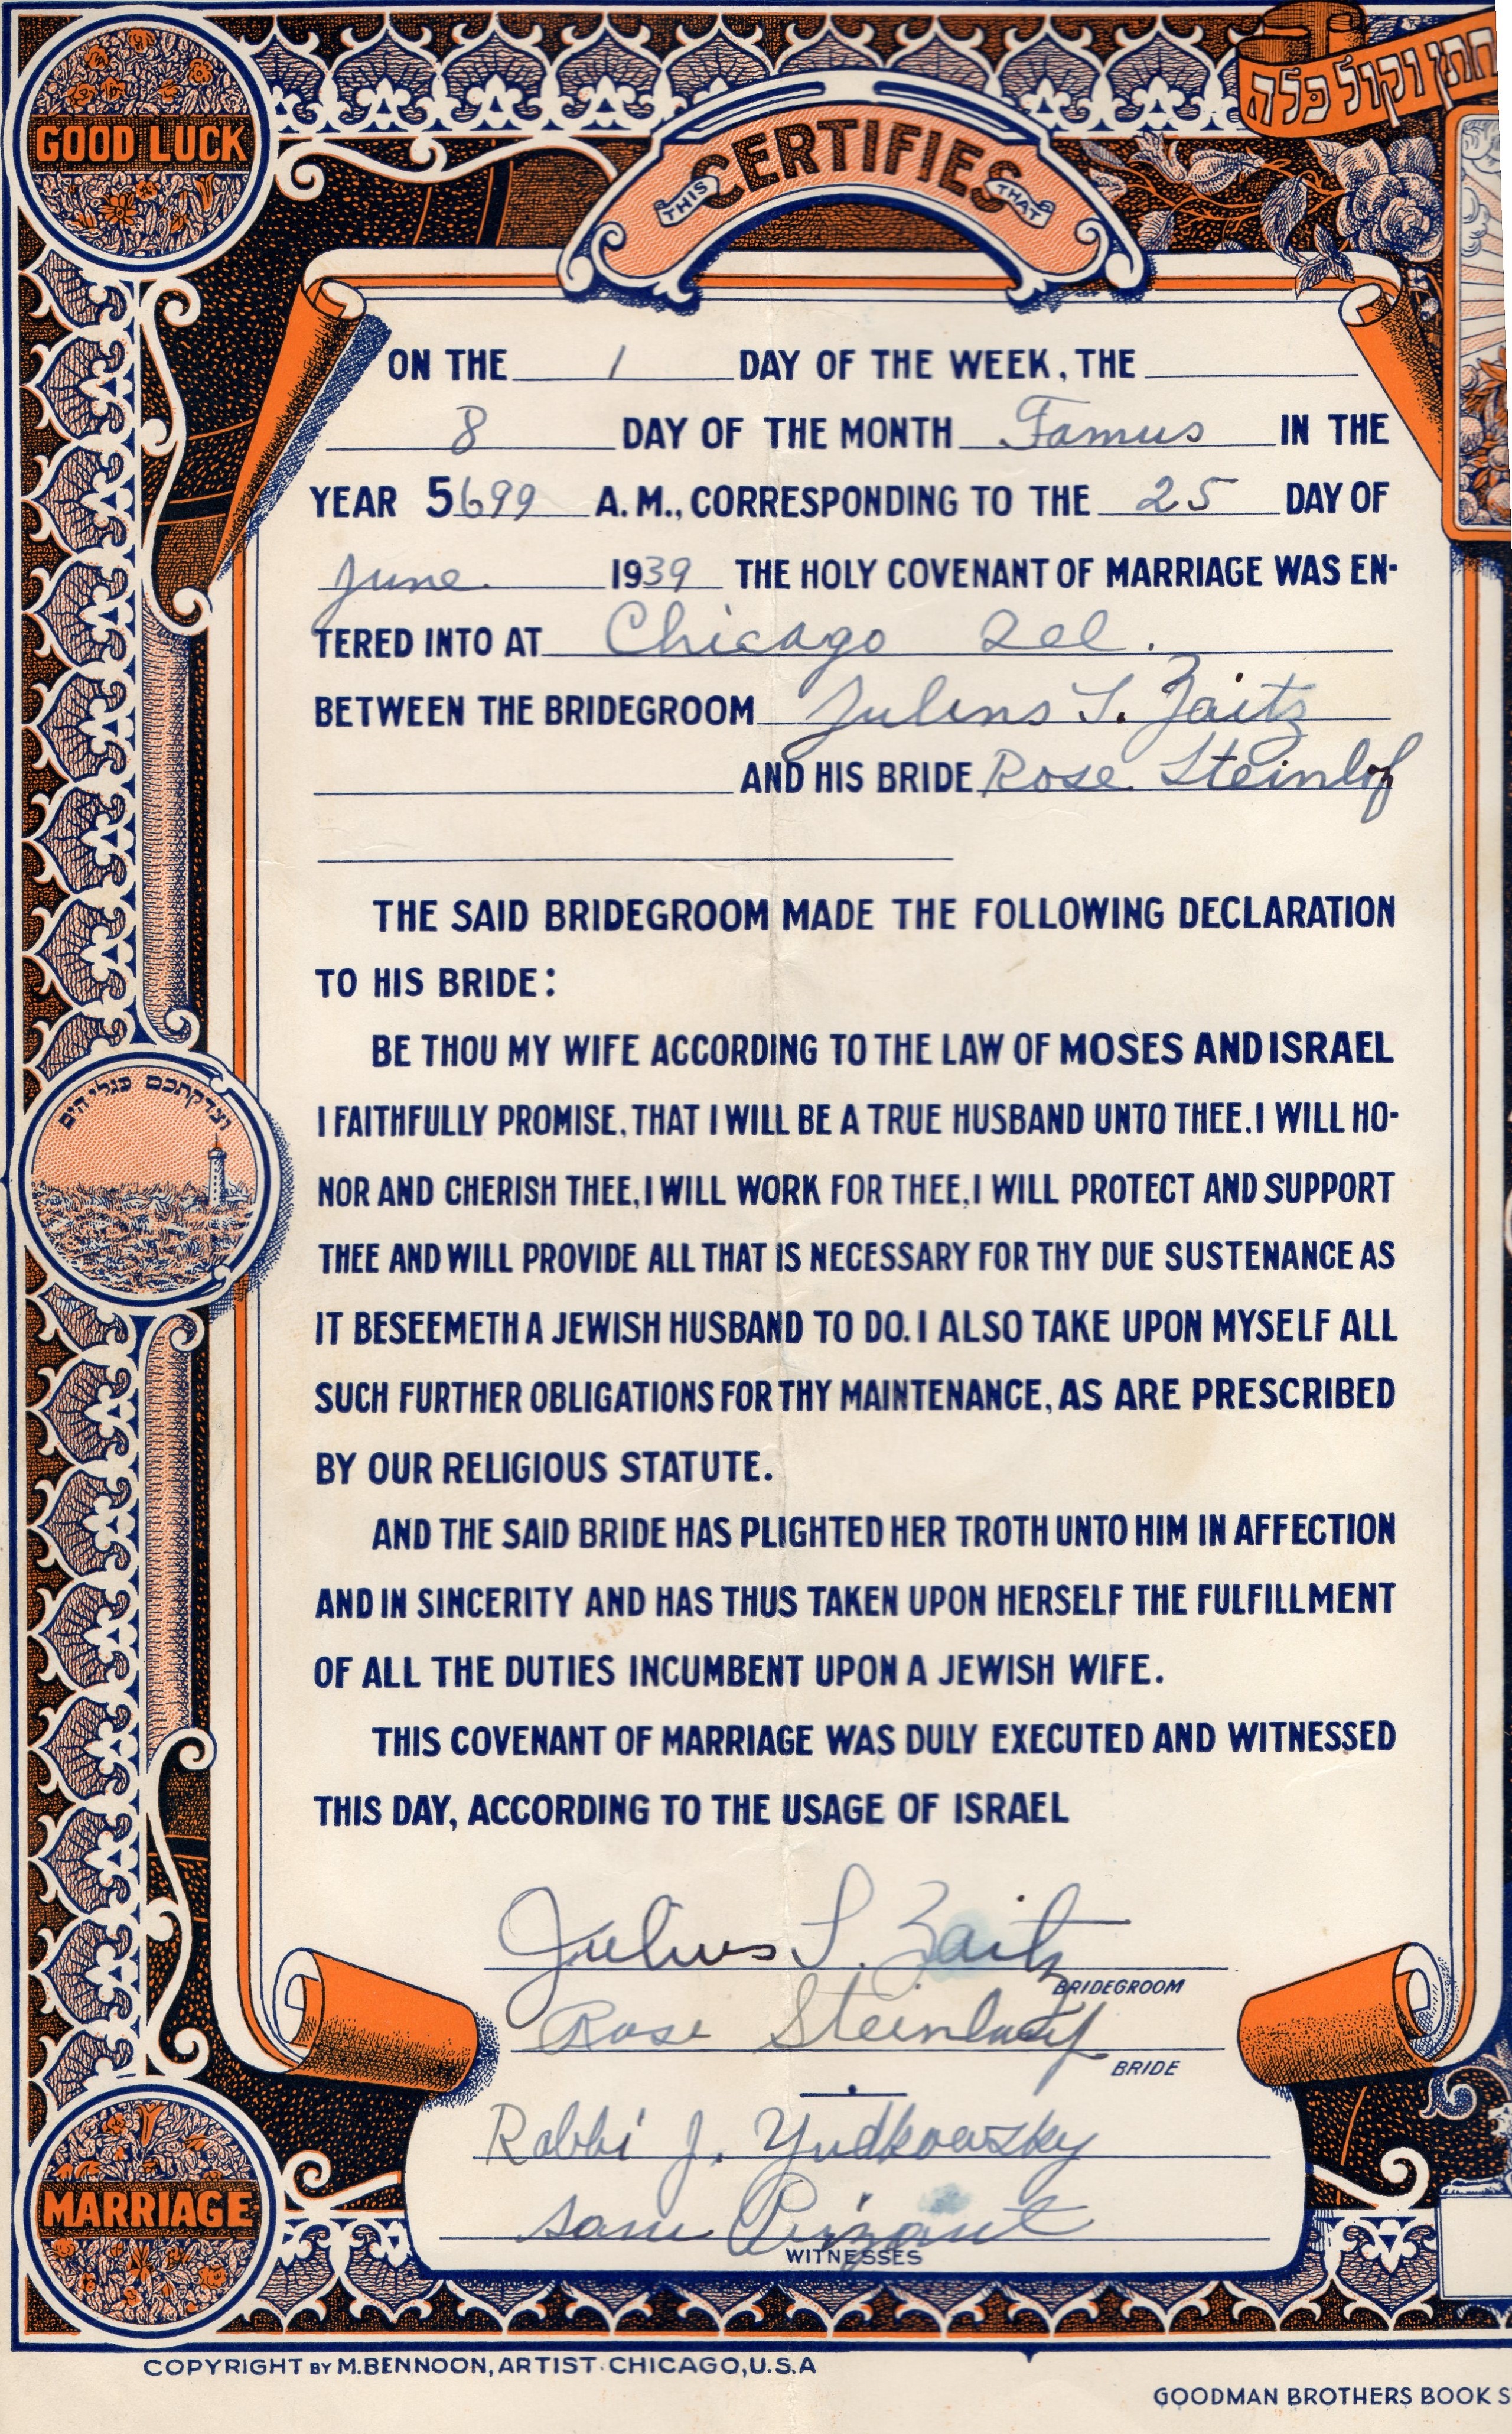 GOOD LUCK
חתן וקול כלה
THIS CERTIFIES THAT
ON THE 1 DAY OF THE WEEK, THE
8 DAY OF THE MONTH Tamus IN THE
YEAR 5699 A.M., CORRESPONDING TO THE 25 DAY OF
June 1939 THE HOLY COVENANT OF MARRIAGE WAS EN-
TERED INTO AT Chicago Ill.
BETWEEN THE BRIDEGROOM Julius S. Zaitz
AND HIS BRIDE Rose Steinlof
THE SAID BRIDEGROOM MADE THE FOLLOWING DECLARATION
TO HIS BRIDE:
BE THOU MY WIFE ACCORDING TO THE LAW OF MOSES AND ISRAEL
I FAITHFULLY PROMISE, THAT I WILL BE A TRUE HUSBAND UNTO THEE. I WILL HO-
NOR AND CHERISH THEE, I WILL WORK FOR THEE, I WILL PROTECT AND SUPPORT
THEE AND WILL PROVIDE ALL THAT IS NECESSARY FOR THY DUE SUSTENANCE AS
IT BESEEMETH A JEWISH HUSBAND TO DO. I ALSO TAKE UPON MYSELF ALL
SUCH FURTHER OBLIGATIONS FOR THY MAINTENANCE, AS ARE PRESCRIBED
BY OUR RELIGIOUS STATUTE.
AND THE SAID BRIDE HAS PLIGHTED HER TROTH UNTO HIM IN AFFECTION
AND IN SINCERITY AND HAS THUS TAKEN UPON HERSELF THE FULFILLMENT
OF ALL THE DUTIES INCUMBENT UPON A JEWISH WIFE.
THIS COVENANT OF MARRIAGE WAS DULY EXECUTED AND WITNESSED
THIS DAY, ACCORDING TO THE USAGE OF ISRAEL
וצדקתכם כגלי הים
Julius S. Zaitz
BRIDEGROOM
Rose
BRIDE
Rabbi J. Yudkowsky
Sam
WITNESSES
MARRIAGE
COPYRIGHT BY M. BENNOON, ARTIST. CHICAGO, U.S.A
GOODMAN BROTHERS BOOK S